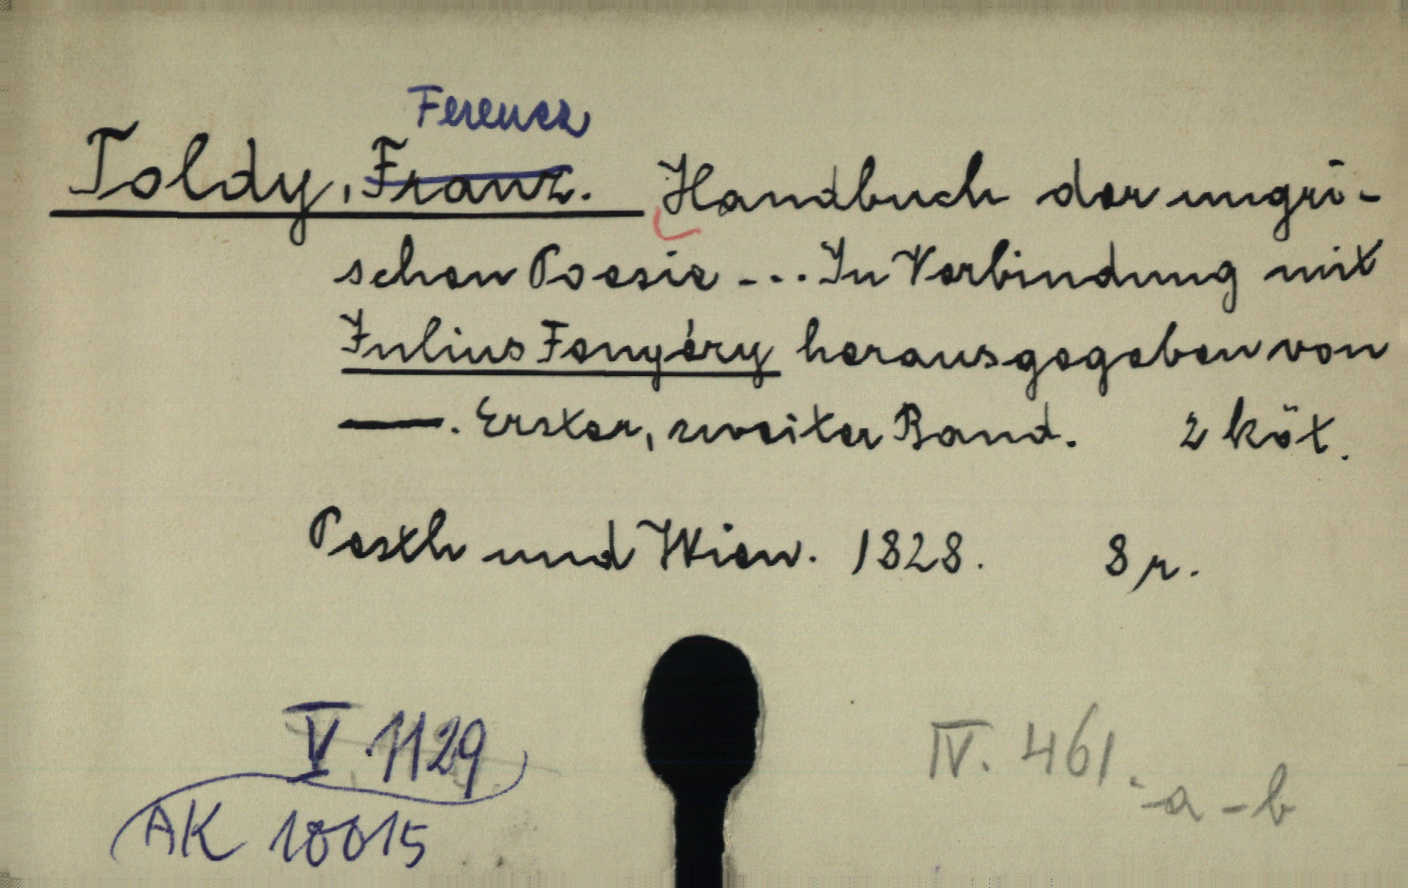 Ferencz
Toldy, Franz. Handbuch der ungri-
schen Poesie - . . . In Verbindung mit
Julius Fenyéry herausgegeben von
—. Erster, zweiter Band. 2 köt.
Pesth und Wien. 1828. 8 r.
V. 1129
IV. 461. a - b
AK 10015